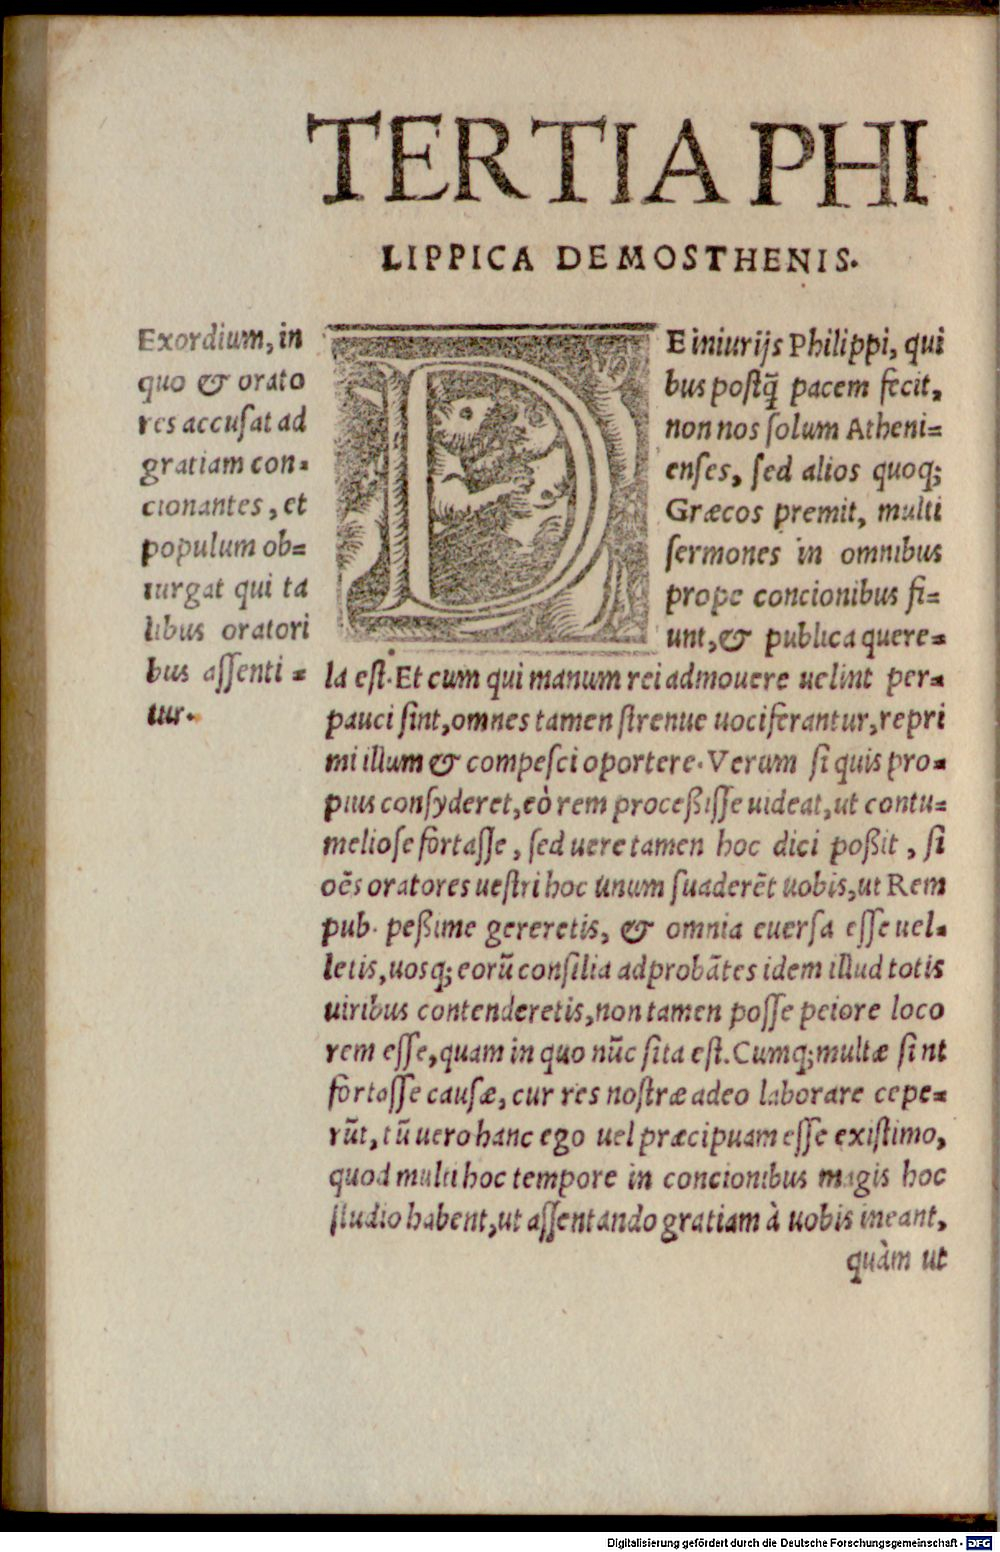 TERTIA PHI
LIPPICA DEMOSTHENIS.
Exordium, in
quo & orato
res accusat ad
gratiam con=
cionantes, et
populum ob=
iurgat qui ta
libus oratori
bus assenti =
tur.
DE iniurijs Philippi, qui
bus postq̃ pacem fecit,
non nos solum Atheni=
enses, sed alios quoq;
Græcos premit, multi
sermones in omnibus
prope concionibus fi=
unt, & publica quere=
la est. Et cum qui manum rei admouere uelint per=
pauci sint, omnes tamen strenue uociferantur, repri
mi illum & compesci oportere. Verum si quis pro=
pius consyderet, eò rem proceßisse uideat, ut contu=
meliose fortasse, sed uere tamen hoc dici poßit, si
oẽs oratores uestri hoc unum suaderẽt uobis, ut Rem
pub. peßime gereretis, & omnia euersa esse uel=
letis, uosq; eorũ consilia adprobãtes idem illud totis
uiribus contenderetis, non tamen posse peiore loco
rem esse, quam in quo nũc sita est. Cumq; multæ sint
fortasse causæ, cur res nostræ adeo laborare cepe=
rũt, tũ uero hanc ego uel præcipuam esse existimo,
quod multi hoc tempore in concionibus magis hoc
studio habent, ut assentando gratiam à uobis ineant,
quàm ut
Digitalisierung gefördert durch die Deutsche Forschungsgemeinschaft - DFG